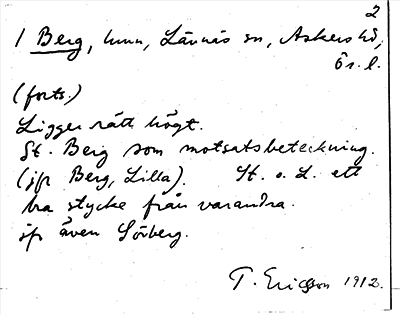 2
1 Berg, hmn, Lännäs sn, Askers hd,
Ör. l.
(forts.)
Ligger rätt högt.
St. Berg som motsatsbeteckning.
(jfr Berg, Lilla). St. o. L. ett
bra stycke från varandra.
jfr även Sörberg.
T. Ericsson 1912.